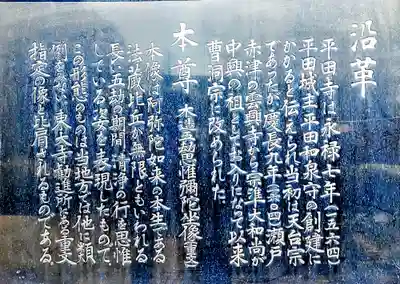 沿革
平田寺は永禄七年(一五六四)
平田城主平田和泉守の創建に
かかると伝えられ当初は天台宗
であったが慶長九年(一六〇四)瀬戸
赤津の雲興寺から宗準大和尚が
中興の祖として大介になって以来
曹洞宗に改められた。
本尊 木造五劫思惟彌陀坐像(重文)
本像は阿弥陀如来の本生である
法蔵比丘が無限ともいわれる
長い五劫の期間、清浄の行を思惟
している姿を表現したもので、
この形態のものは当地方では他に類
例をみない。東大寺勧進所にある重文
指定の像と比肩されるものである。